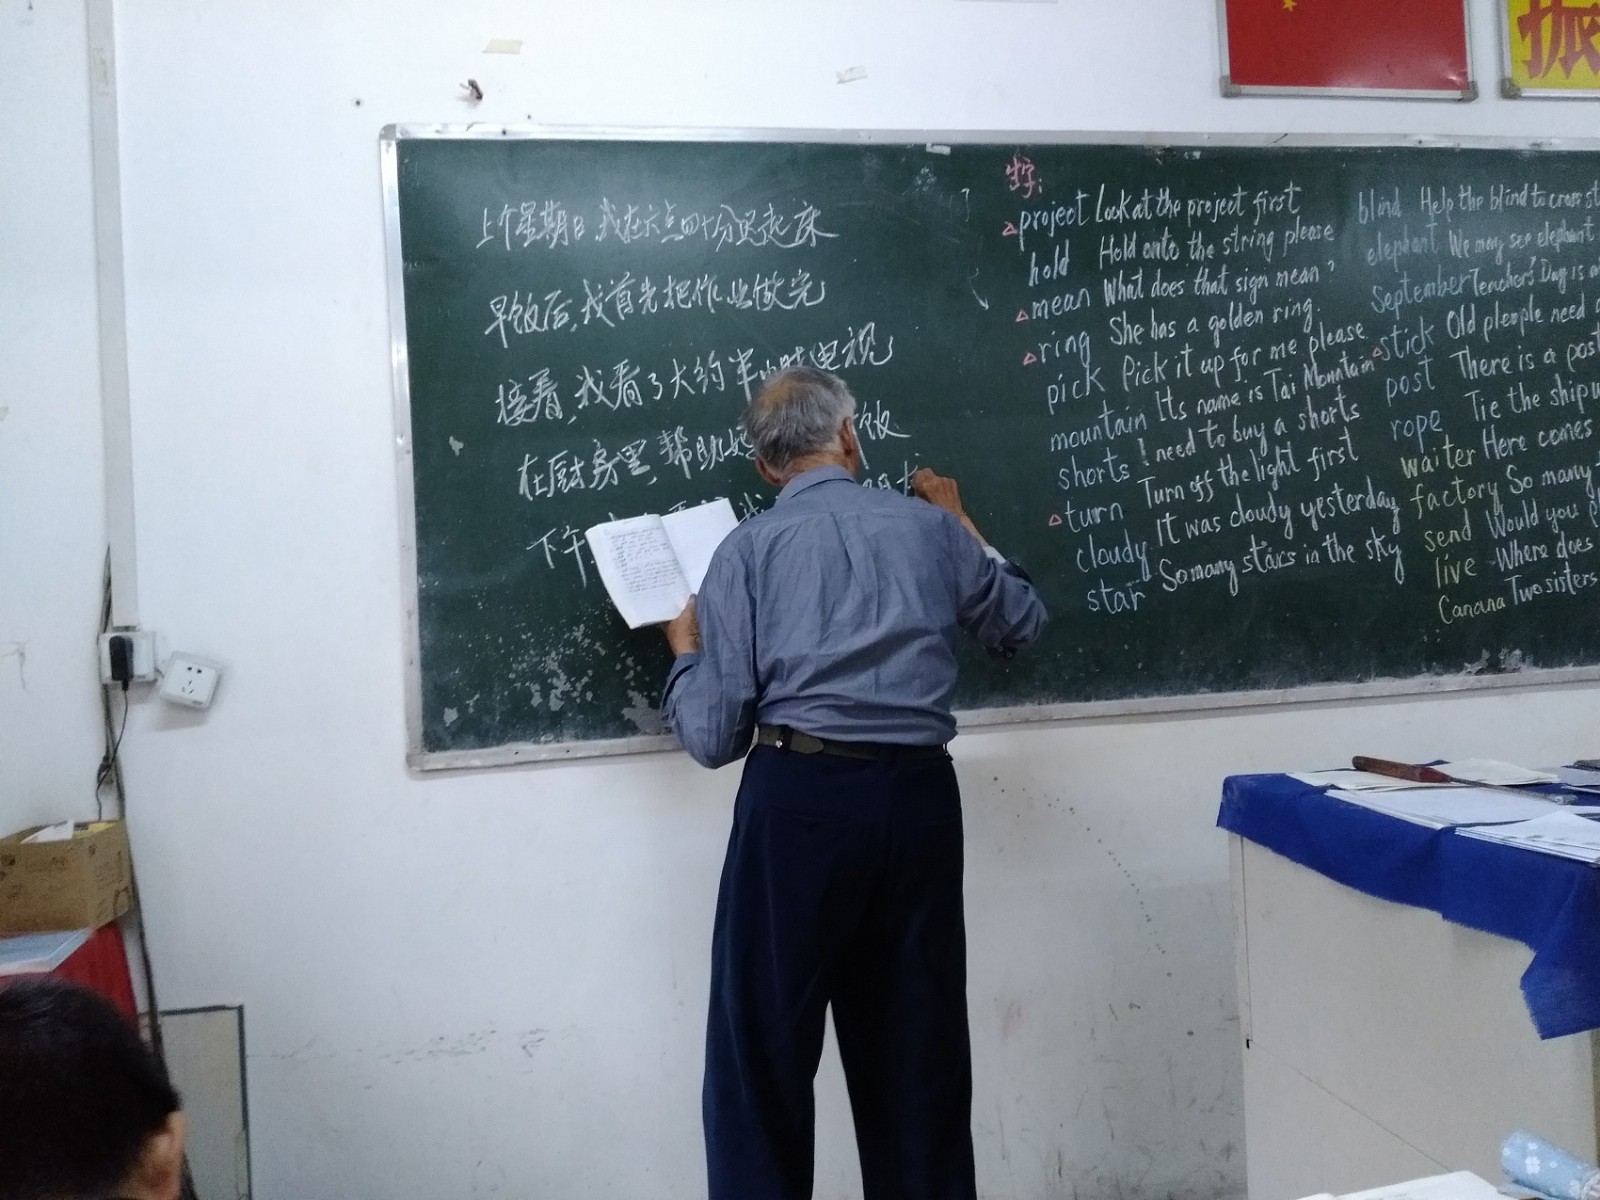 振
上个星期日,我在六点四十分只起床
早饭后,我首先把作业做完
接着,我看了大约半小时电视
在厨房里,帮助 饭
下午
生字:
project Look at the project first
hold Hold onto the string please
mean What does that sign mean?
ring She has a golden ring.
pick Pick it up for me please
mountain Its name is Tai Mountain
shorts I need to buy a shorts
turn Turn off the light first
cloudy It was cloudy yesterday
star So many stars in the sky
blind Help the blind to cross st
elephant We may see elephant
September Teachers' Day is a
stick Old pleople need
post There is a post
rope Tie the ship u
waiter Here comes
factory So many
send Would you p
live Where does
Canana Two sisters